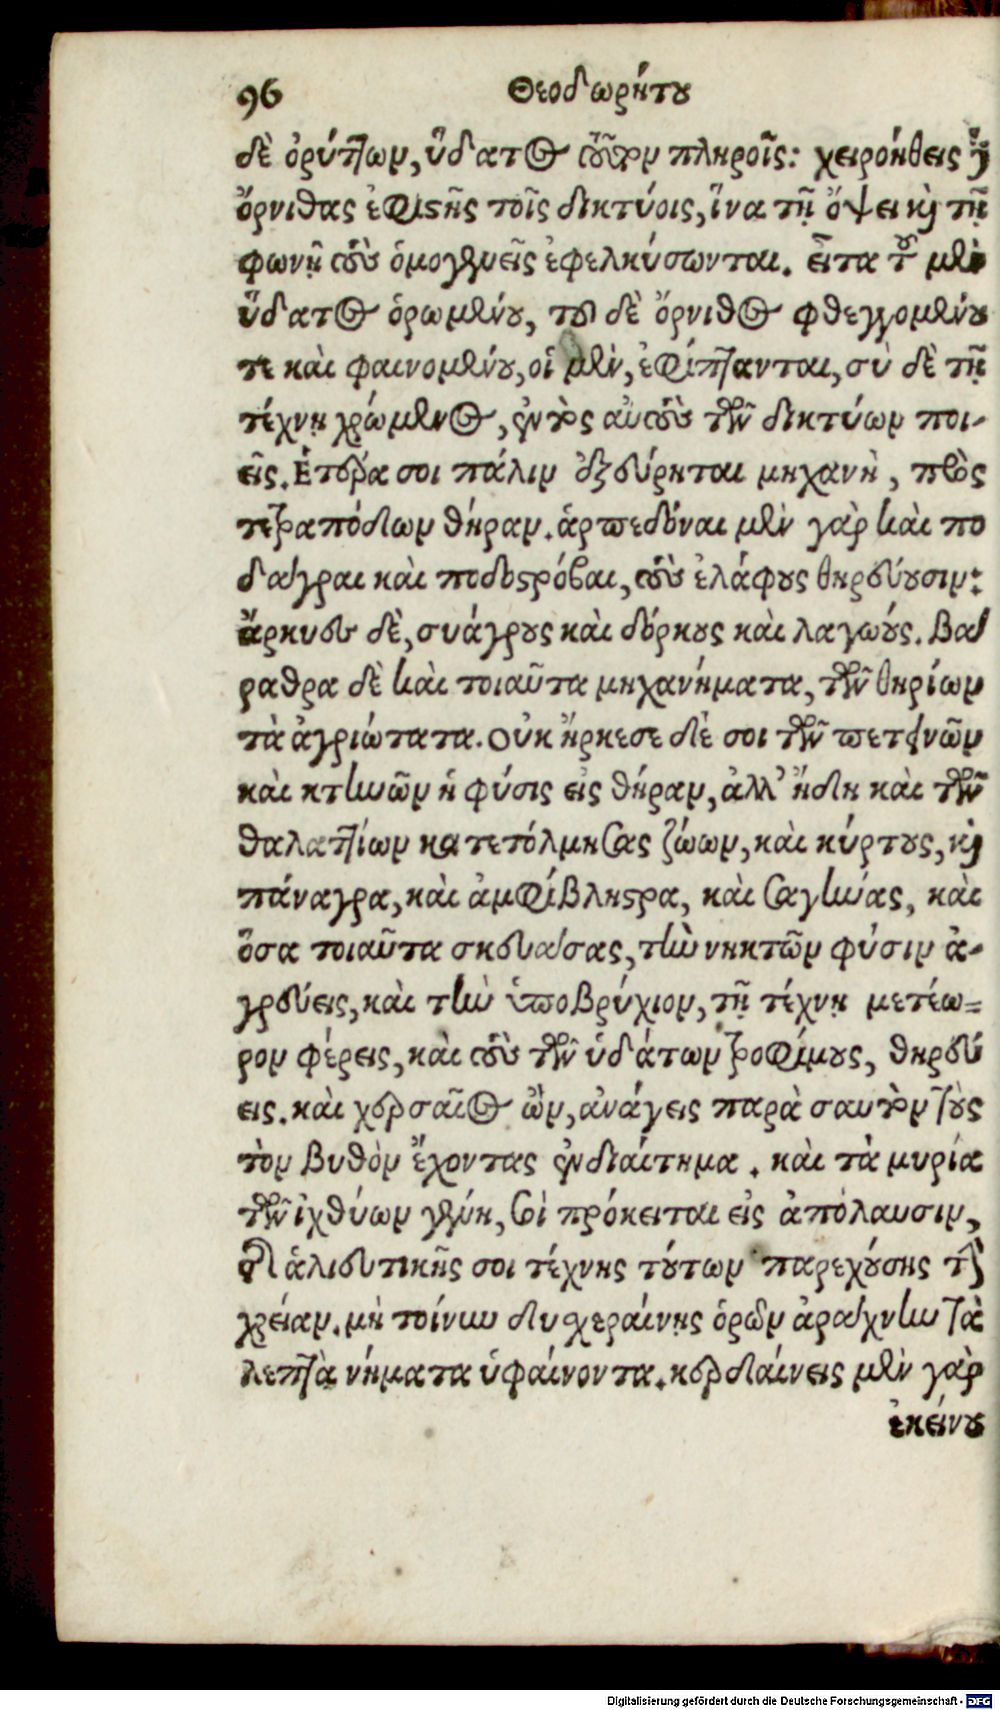 96 Θεοδωρήτου
δὲ ὀρύττων, ὕδατος τοῦτον πληροῖς: χειροήθεις καὶ
ὄρνιθας ἐφιστῆς τοῖς δικτύοις, ἵνα τῇ ὄψει καὶ τῇ
φωνῇ τοὺς ὁμογενεῖς ἐφελκύσωνται. εἶτα τοῦ μὲν
ὕδατος ὁρωμένου, τοῦ δὲ ὄρνιθος φθεγγομένου
τε καὶ φαινομένου, οἱ μὲν, ἐφίπτανται, σὺ δὲ τῇ
τέχνῃ χρώμενος, ἐντὸς αὐτοὺς τῶν δικτύων ποι-
εῖς. Ἑτέρα σοι πάλιν ἐξεύρηται μηχανὴ, πρὸς
τετραπόδων θήραν. ἁρπεδόναι μὲν γὰρ καὶ πο
δάγραι καὶ ποδοστρόβαι, τοὺς ἐλάφους θηρεύουσιν:
ἄρκυες δὲ, συάγρους καὶ δόρκους καὶ λαγωούς. βά
ραθρα δὲ καὶ τοιαῦτα μηχανήματα, τῶν θηρίων
τὰ ἀγριώτατα. Οὐκ ἤρκεσε δέ σοι τῶν πετεινῶν
καὶ κτηνῶν ἡ φύσις εἰς θήραν, ἀλλ' ἤδη καὶ τῶν
θαλαττίων κατετόλμησας ζώων, καὶ κύρτους, καὶ
πάναγρα, καὶ ἀμφίβληστρα, καὶ σαγήνας, καὶ
ὅσα τοιαῦτα σκευάσας, τὴν νηκτῶν φύσιν ἀ-
γρεύεις, καὶ τὴν ὑποβρύχιον, τῇ τέχνῃ μετέω=
ρον φέρεις, καὶ τοὺς τῶν ὑδάτων τροφίμους, θηρεύ
εις. καὶ χερσαῖος ὢν, ἀνάγεις παρὰ σαυτὸν τοὺς
τὸν βυθὸν ἔχοντας ἐνδιαίτημα. καὶ τὰ μυρία
τῶν ἰχθύων γένη, σοὶ πρόκειται εἰς ἀπόλαυσιν,
τῆς ἁλιευτικῆς σοι τέχνης τούτων παρεχούσης τὴν
χρείαν. μὴ τοίνυν δυσχεραίνῃς ὁρῶν ἀράχνην τὰ
λεπτὰ νήματα ὑφαίνοντα. κερδαίνεις μὲν γὰρ
ἐκείνου
Digitalisierung gefördert durch die Deutsche Forschungsgemeinschaft - DFG